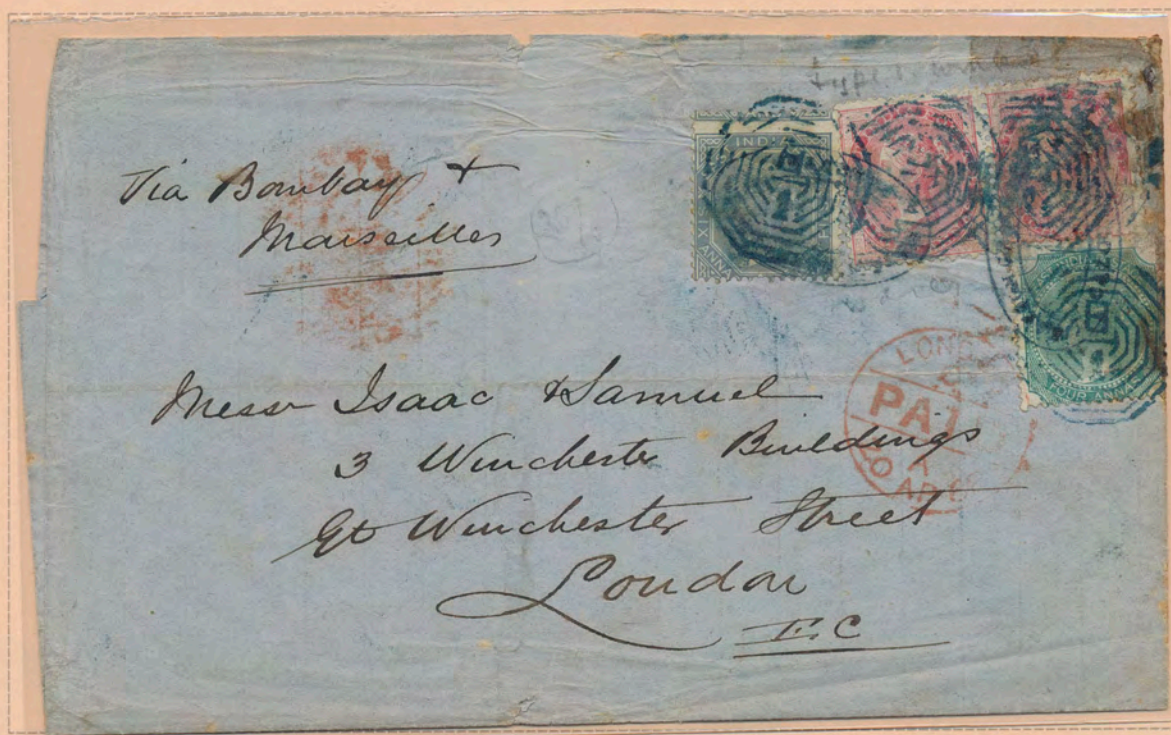 Via Bombay +
Marseilles
INDIA
SIX ANNA
FOUR ANNAS
LON
PAI
AP
Messr Isaac & Samuel
3 Winchester Buildings
Gt Winchester Street
London
E.C